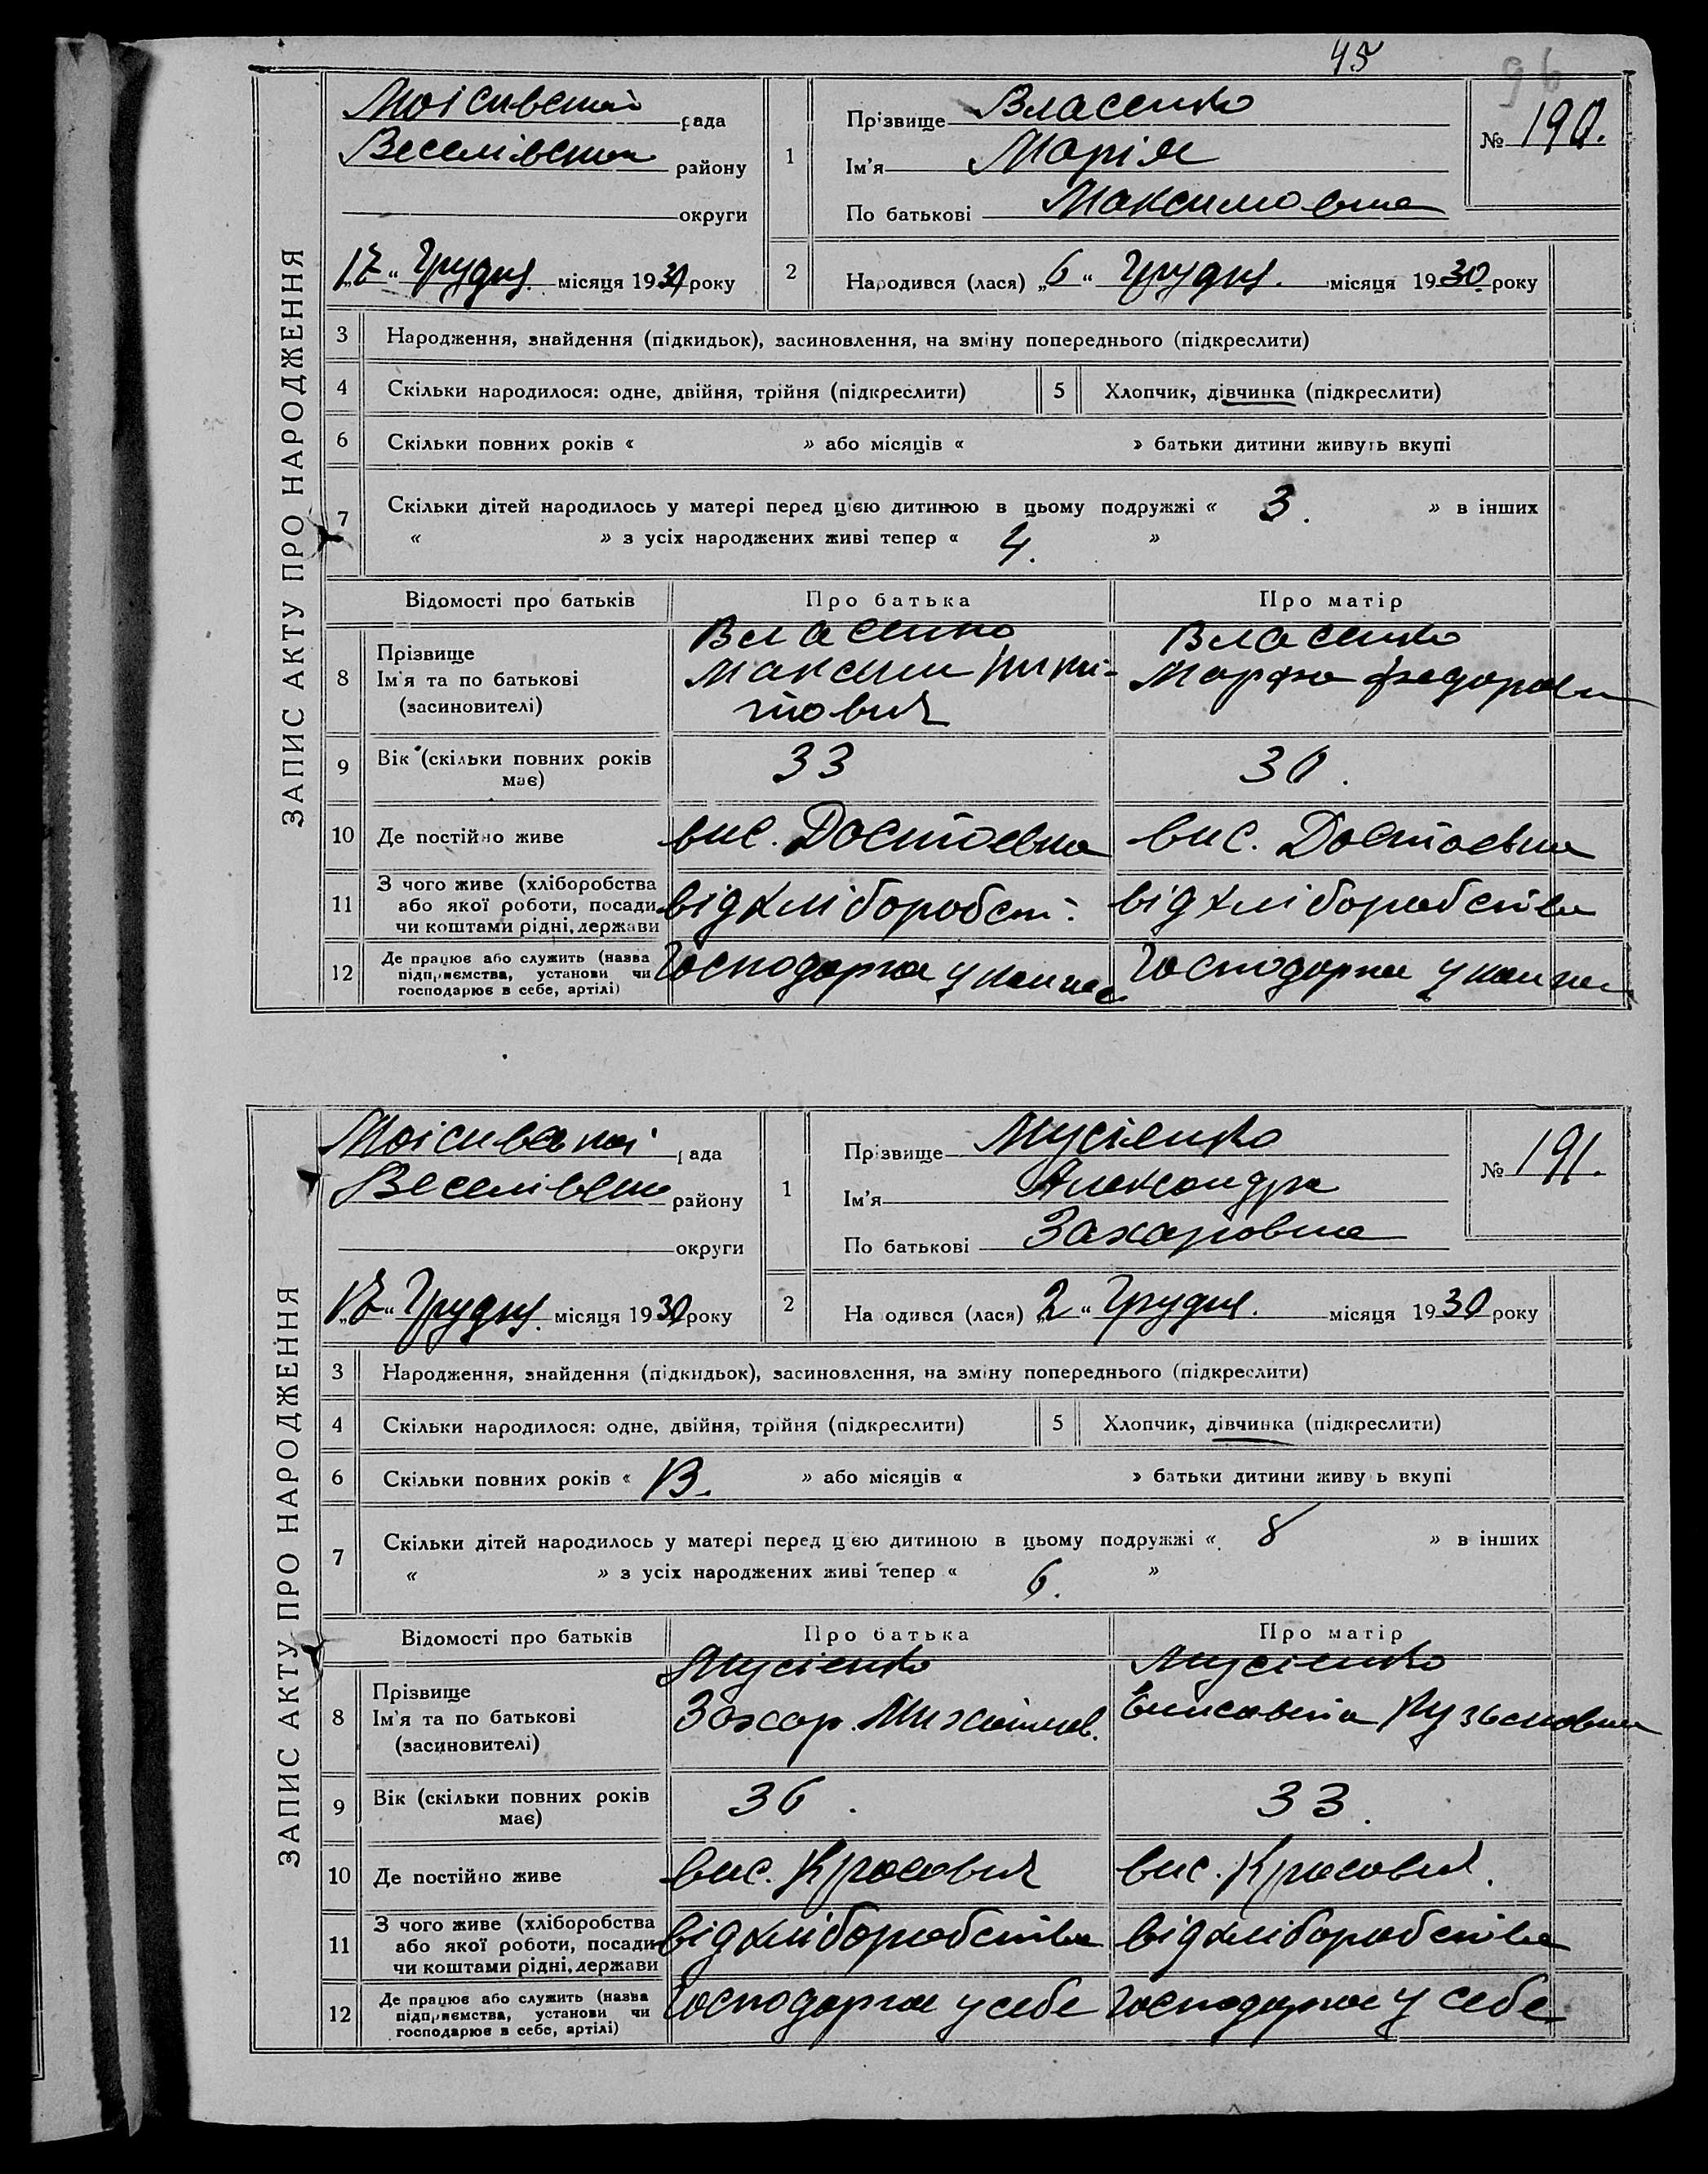 45
96
ЗАПИС АКТУ ПРО НАРОДЖЕННЯ
Моісивської рада
Веселівськ району
округи
„17“ Грудня місяця 1930 року
1
Прізвище Власенко
Ім'я Марія
По батькові Максимовна
№ 190.
2
Народився (лася) „6“ Грудня. місяця 1930 року
3 Народження, знайдення (підкидьок), засиновлення, на зміну попереднього (підкреслити)
4 Скільки народилося: одне, двійня, трійня (підкреслити) 5 Хлопчик, дівчинка (підкреслити)
6 Скільки повних років « » або місяців « » батьки дитини живуть вкупі
7 Скільки дітей народилось у матері перед цією дитиною в цьому подружжі « 3. » в інших
« » з усіх народжених живі тепер « 4. »
Відомості про батьків Про батька Про матір
8
Прізвище
Ім'я та по батькові
(засиновителі)
Власенко
Максим Ники-
тович
Власенко
Марфа Федоровн
9 Вік (скільки повних років
має)
33
30.
10 Де постійно живе вис. Достоевка вис. Достоевка
11 З чого живе (хліборобства
або якої роботи, посади
чи коштами рідні, держави
від хліборобст. від хліборобства
12 Де працює або служить (назва
підприємства, установи чи
господарює в себе, артілі)
Господарка у Господарка у
ЗАПИС АКТУ ПРО НАРОДЖЕННЯ
Моісивської рада
Веселівськ району
округи
„17“ Грудня місяця 1930 року
1
Прізвище Мусіенко
Ім'я Александра
По батькові Захаровна
№ 191.
2
Народився (лася) „2“ Грудня. місяця 1930 року
3 Народження, знайдення (підкидьок), засиновлення, на зміну попереднього (підкреслити)
4 Скільки народилося: одне, двійня, трійня (підкреслити) 5 Хлопчик, дівчинка (підкреслити)
6 Скільки повних років « 13. » або місяців « » батьки дитини живуь вкупі
7 Скільки дітей народилось у матері перед цією дитиною в цьому подружжі « 8 » в інших
« » з усіх народжених живі тепер « 6. »
Відомості про батьків Про батька Про матір
8
Прізвище
Ім'я та по батькові
(засиновителі)
Мусіенко
Захар Михайлов.
Мусіенко
Єлисавета Кузьмовна
9 Вік (скільки повних років
має)
36.
33.
10 Де постійно живе вис. Красович вис. Красович.
11 З чого живе (хліборобства
або якої роботи, посади
чи коштами рідні, держави
від хліборобства від хліборобства
12 Де працює або служить (назва
підприємства, установи чи
господарює в себе, артілі)
Господарка у себе Господарка у себе